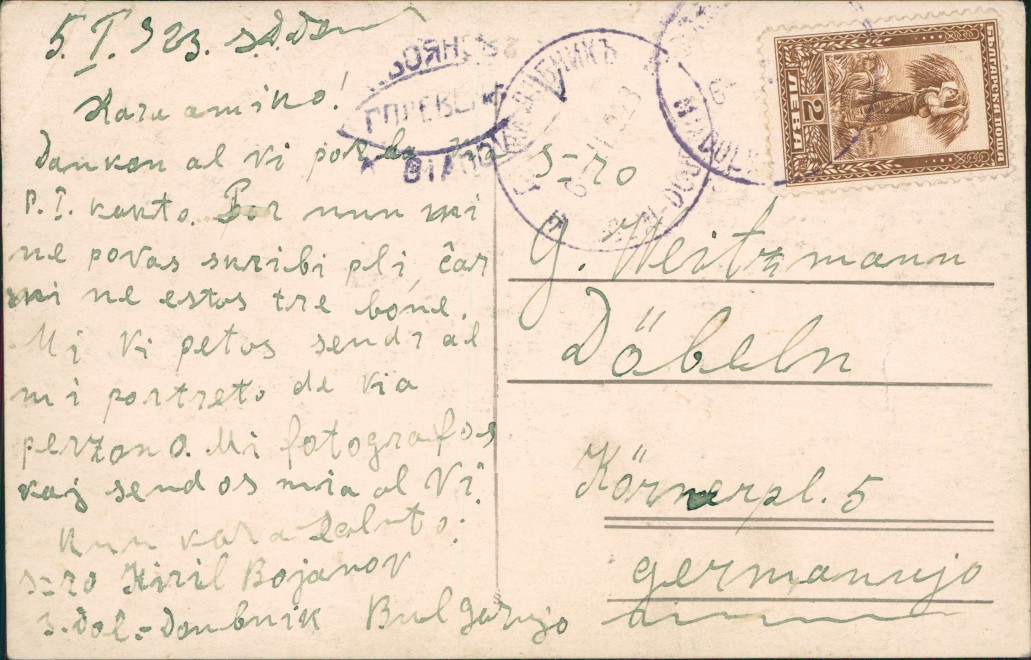 5. I. 923.
Kara amiko!
Dankon al vi por la
P.I. karto. Por nun mi
ne povas skribi pli, ĉar
mi ne estas tre bone.
Mi vi petas sendi al
mi portreto de via
perzono. Mi fotografos
kaj sendos mia al Vi.
Kun kara Saluto:
s-ro Kiril Bojanov
s. Dol.-Doubnik Bulgarujo
s-ro
G. Weitzmann
Döbeln
Körnerpl. 5
germanujo
БЪЛГАРСКА ПОЩА
2 ЛЕВА